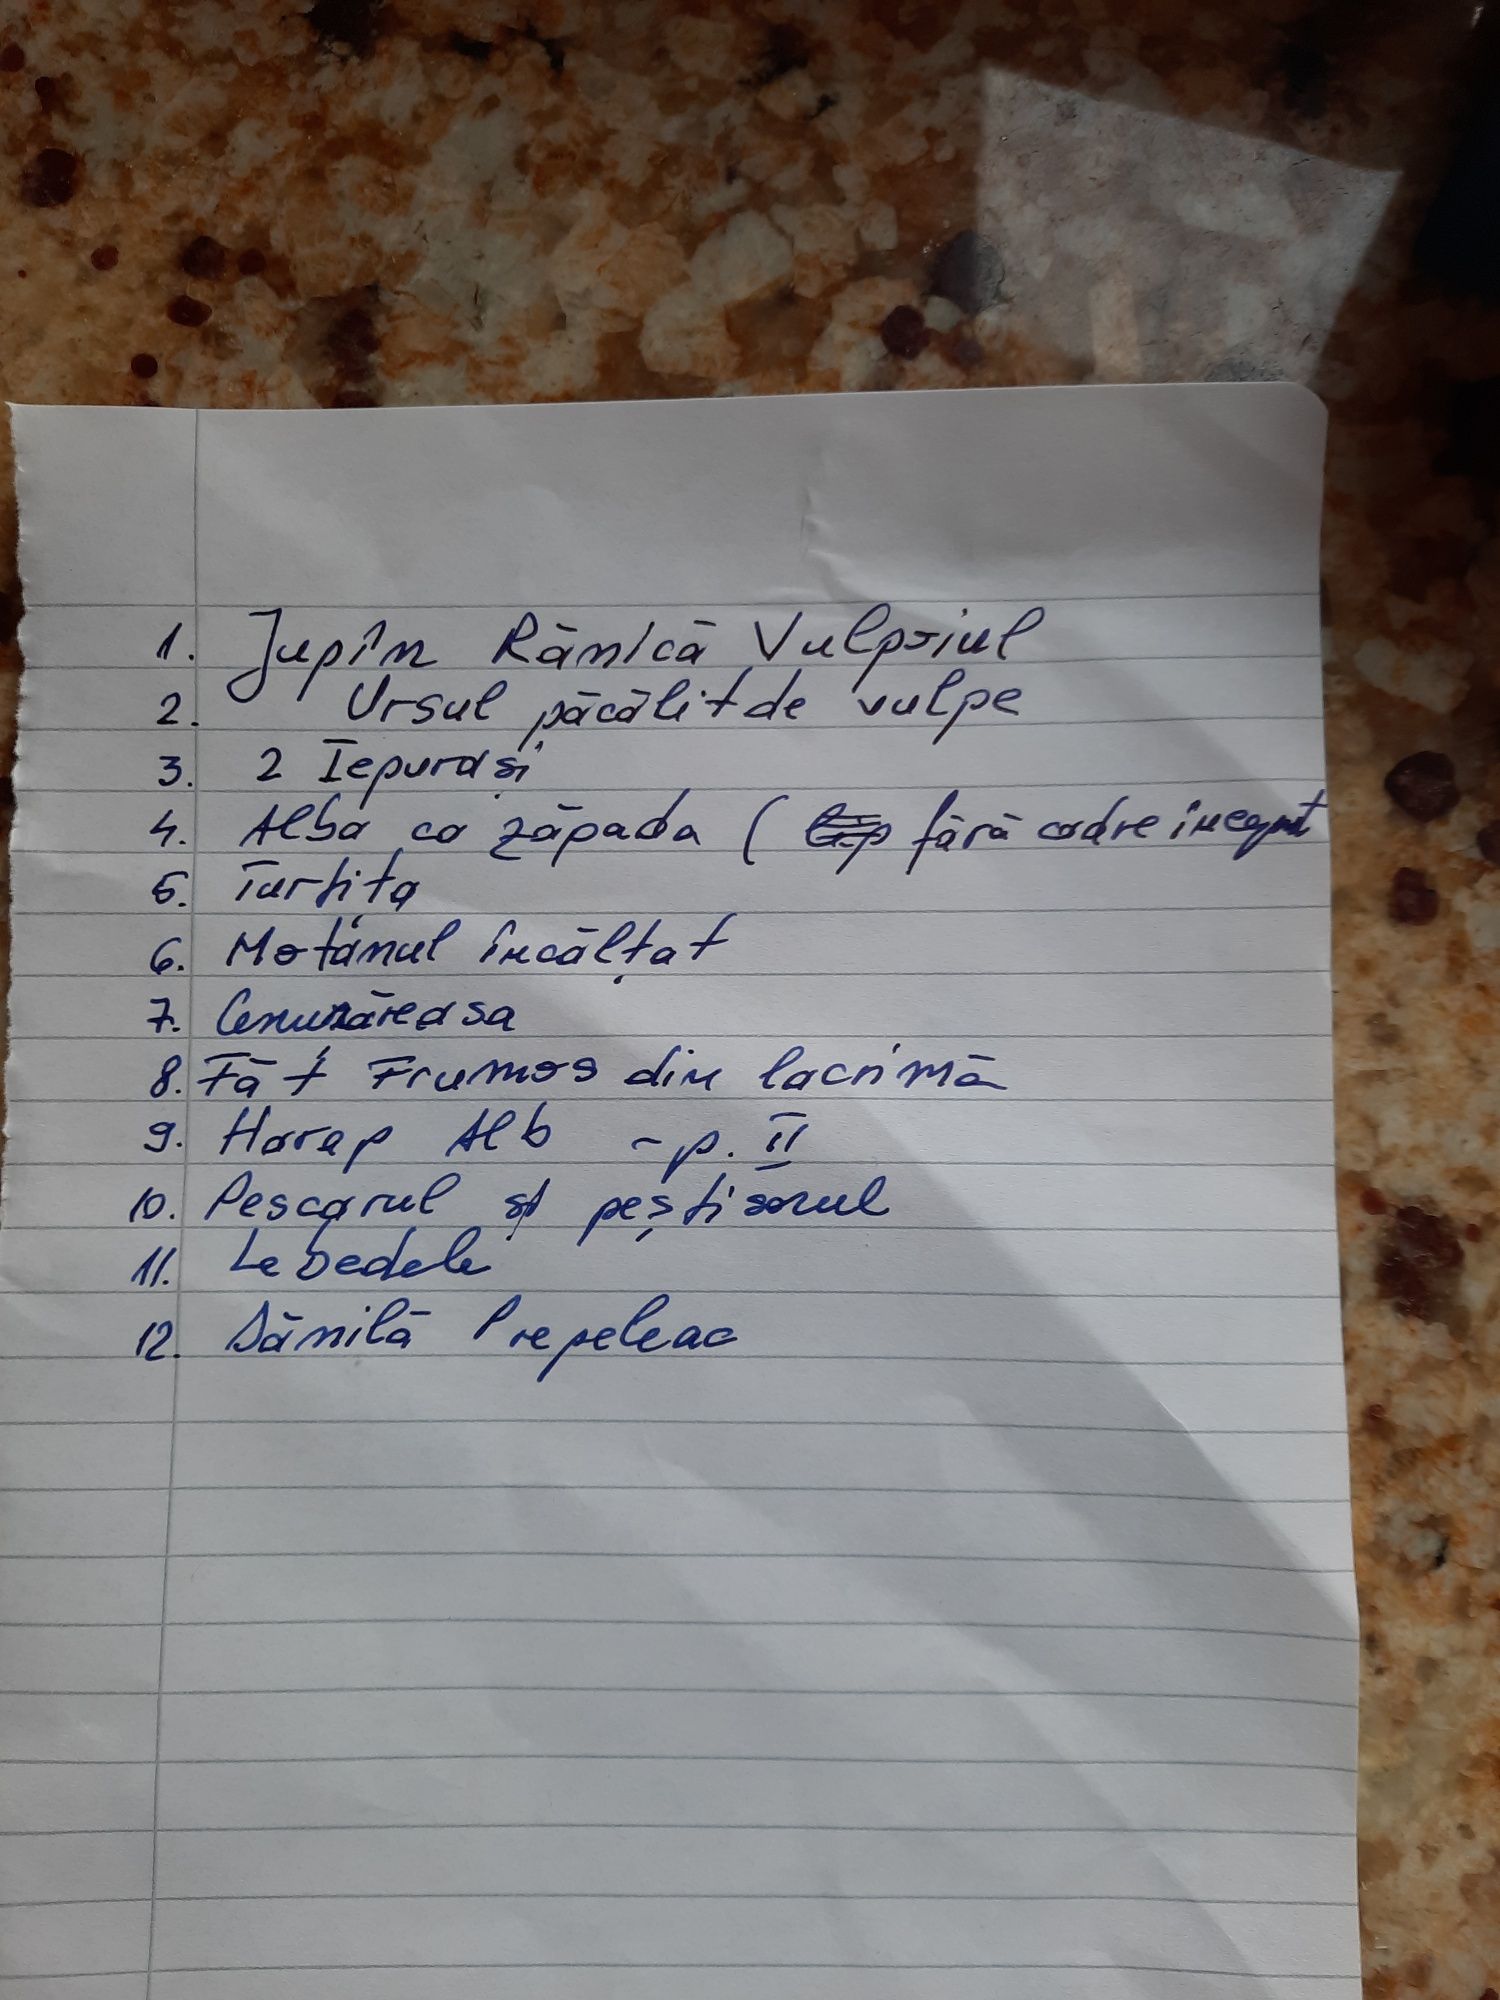 1. Jupîn Rănică Vulpoiul
2. Ursul păcălit de vulpe
3. 2 Iepurași
4. Alba ca zăpada ( fără cadre incept
5. Turtița
6. Motanul încălțat
7. Cenușăreasa
8. Făt Frumos din lacrimă
9. Harap Alb - p. II
10. Pescarul și peștișorul
11. Lebedele
12. Dănilă Prepeleac